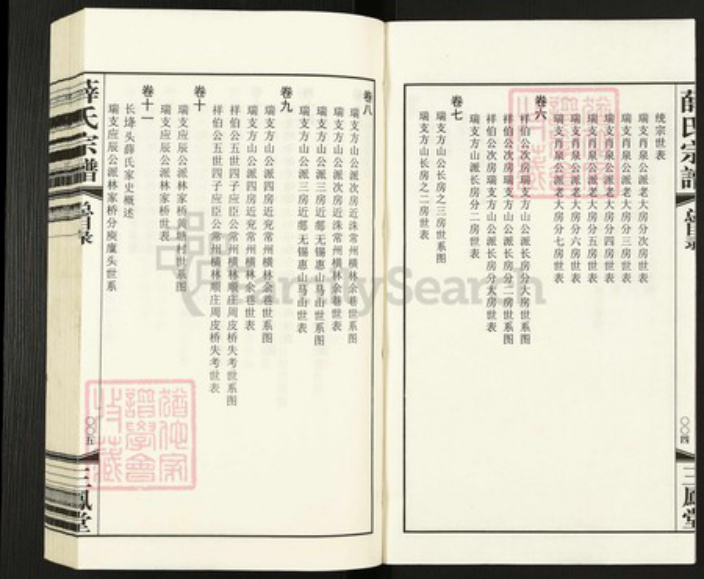 薛氏宗譜
总目录
〇〇四
三鳳堂
统宗世表
瑞支肖泉公派老大房分次房世表
瑞支肖泉公派老大房分三房世表
瑞支肖泉公派老大房分四房世表
瑞支肖泉公派老大房分五房世表
瑞支肖泉公派老大房分六房世表
瑞支肖泉公派老大房分七房世表
卷六
祥伯公次房瑞支方山公派长房分大房世系图
祥伯公次房瑞支方山公派长房分二房世系图
祥伯公次房瑞支方山公派长房分大房世表
瑞支方山派长房分二房世表
卷七
瑞支方山公长房之三房世系图
瑞支方山长房之二房世表
卷八
瑞支方山公派次房近洙常州横林余巷世系图
瑞支方山公派次房近洙常州横林余巷世表
瑞支方山公派三房近鄅无锡惠山马山世系图
瑞支方山公派三房近鄅无锡惠山马山世表
卷九
瑞支方山公派四房近兖常州横林余巷世系图
瑞支方山公派四房近兖常州横林余巷世表
祥伯公五世四子应臣公常州横林顺庄周皮桥失考世系图
祥伯公五世四子应臣公常州横林顺庄周皮桥失考世表
卷十
瑞支应辰公派林家桥黄塘村世系图
瑞支应辰公派林家桥世表
卷十一
长垮头薛氏家史概述
瑞支应辰公派林家桥分庾廑头世系
薛氏宗譜
总目录
〇〇五
三鳳堂
FamilySearch